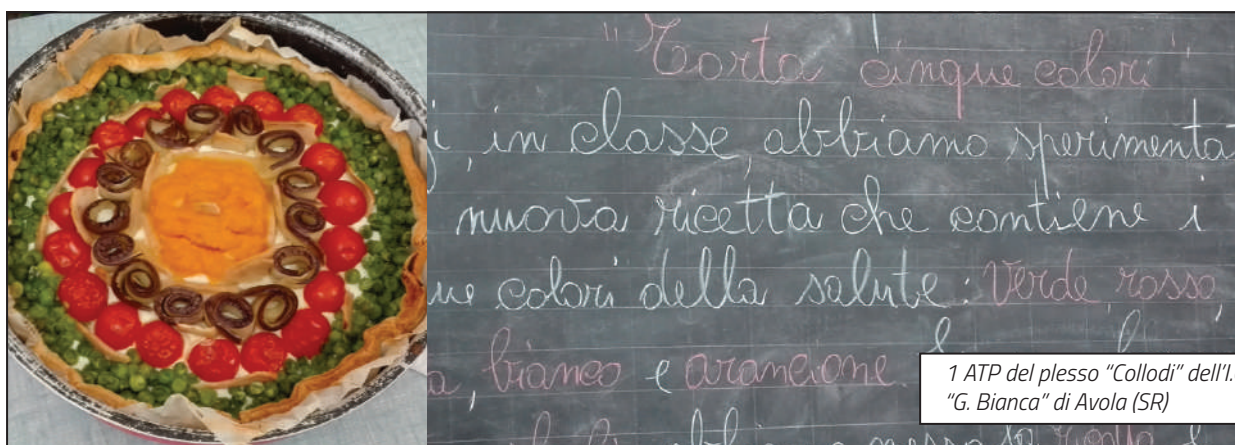 "Torta cinque colori"
i, in classe, abbiamo sperimenta
nuova ricetta che contiene i
ue colori della salute: Verde rosso,
a, bianco e arancione.
messo la ricotta e
1 ATP del plesso "Collodi" dell'I.
"G. Bianca" di Avola (SR)